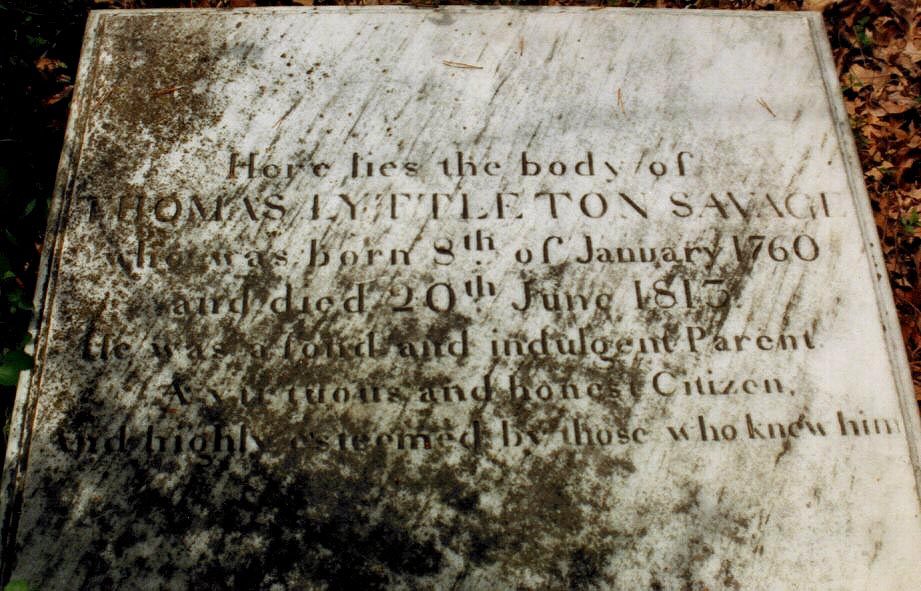 Here lies the body of
THOMAS LYTTLETON SAVAGE
who was born 8th of January 1760
and died 20th June 1813
He was a fond and indulgent Parent.
A virtuous and honest Citizen,
And highly esteemed by those who knew him